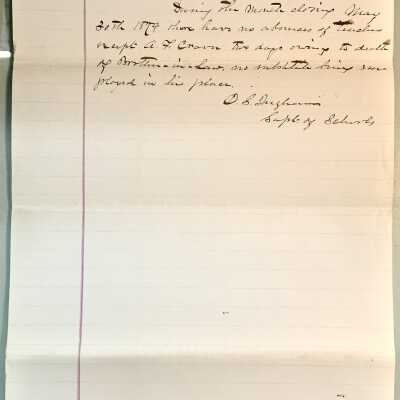 During the month closing May
30th 1879 there have no absences of teachers
except A. F. Craven two days owing to death
of Brother-in-law, no substitute being em-
ployed in his place.
O S
Supt of Schools